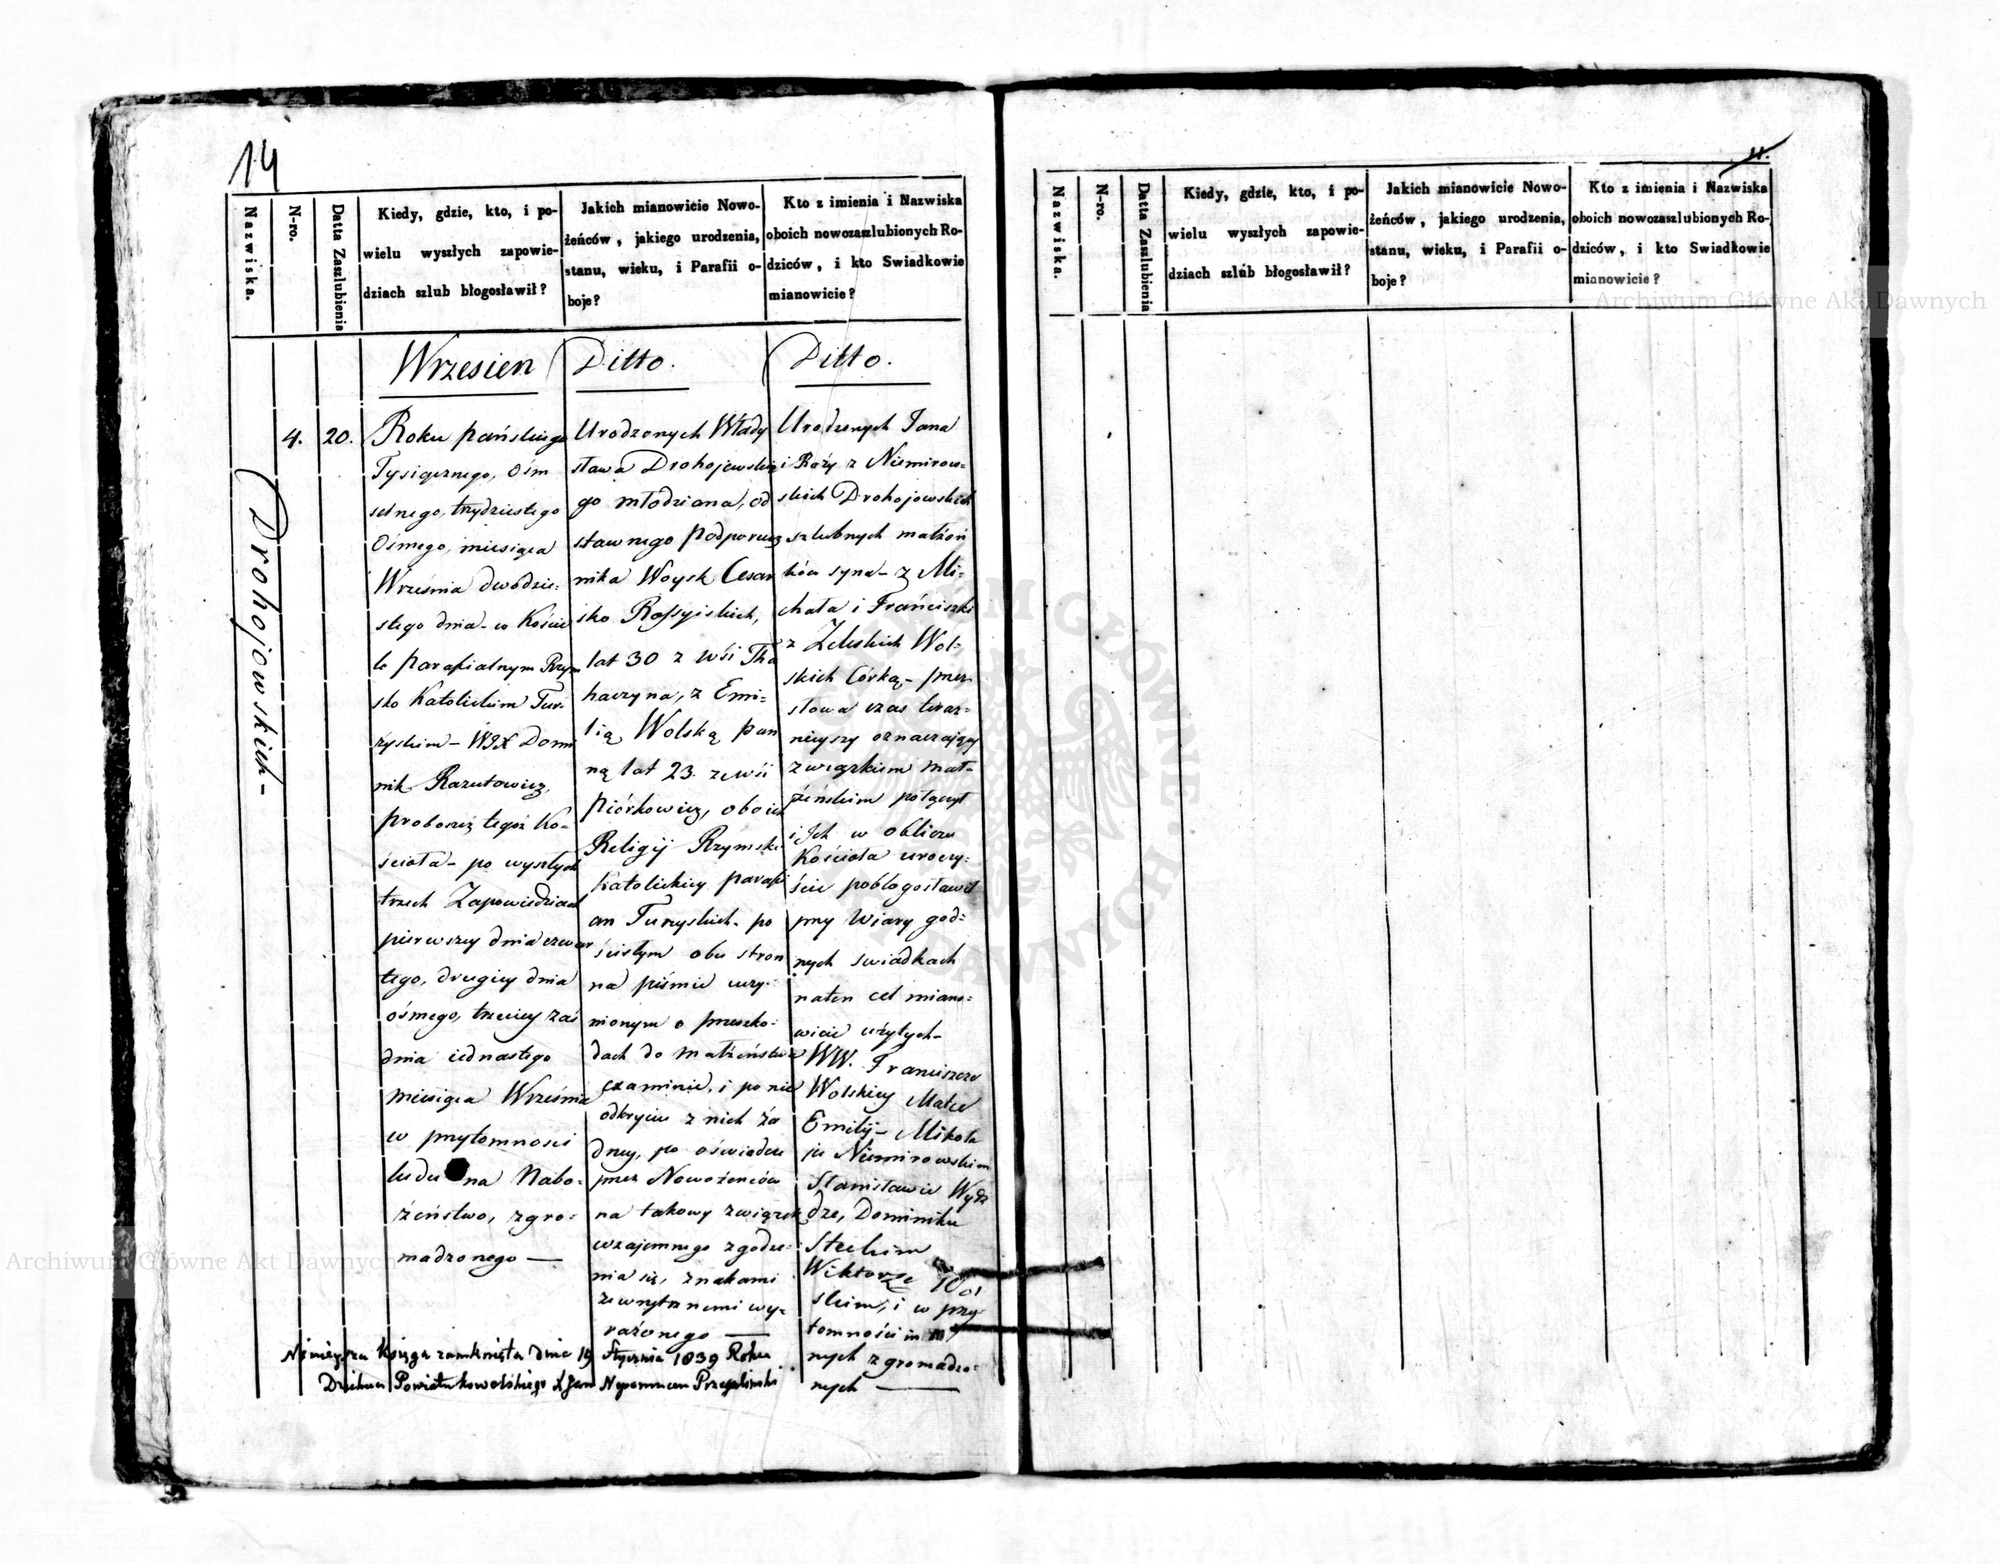 14
Nazwiska.
N-ro.
Datta Zaszlubienia
Kiedy, gdzie, kto, i po-
wielu wyszłych zapowie-
dziach szlub błogosławił?
Jakich mianowicie Nowo-
żeńców, jakiego urodzenia,
stanu, wieku, i Parafii o-
boje?
Kto z imienia i Nazwiska
oboich nowozaszlubionych Ro-
dziców, i kto Swiadkowie
mianowicie?
Drohojowskich-
4.
20.
Wrzesien
Roku pańskiego
Tysiącznego, Ośm
setnego, trzydziestego
Ósmego, miesiąca
Września dwódzie-
stego dnia- w Kościе
le parafialnym Rzym
sko Katolickim Tur-
zyskim- WJX Domi
nik Razutowicz,
proboszcz tegoż Ko-
ścioła- po wyszłych
trzech Zapowiedziach
pierwszey dnia czwar
tego, drugiey dnia
ósmego, trzeciey zaś
dnia iednastego
miesiąca Września
w przytomności
ludu na Nabo-
żeństwo, zgro-
madzonego —
Ditto.
Urodzonych Włady
sława Drohojewskie
go młodziana, od
stawnego Podporucz
nika Woysk Cesar
sko Rossyiskich,
lat 30 z wśi Tha
haczyna, z Emi-
lią Wolską pan
ną lat 23. ze wśi
Piórkowicz, oboich
Religij Rzymsko
Katolickiey parafi
an Turzyskich- po
ścisłym obu stron
na piśmie uczy-
nionym o przeszko-
dach do małżeństwa
examinie, i po nie
odkryciu z nich ża
dney, po oświadcze
przez Nowożeńców
na takowy związek
wzajemnego zgodze-
nia się, znakami
zewnętrznemi wy-
rażonego —
Ditto.
Urodzonych Jana
i Róży z Niemirow-
skich Drohojowskich
szlubnych małżon
ków syna- z Mi-
chała i Franciszki
z Zeleskich Wol-
skich Córką- przez
słowa czas teraz-
nieyszy oznaczający
związkiem mał-
żeńskim połączył
i Jch w obliczu
Kościoła uroczy-
ście pobłogosławił
przy Wiary god-
nych swiadkach
naten cel miano-
wicie użytych-
WW. Franciszce
Wolskiey Matce
Emilij- Mikoła
ju Niemirowskim
Stanisławie Wydż
dze, Dominiku
Steckim
Wiktorze Wol
skim, i w przy-
tomności in
nych zgromadzo-
nych —
Ninieysza Księga zamknięta dnia 19 Stycznia 1839 Roku
Dziekan Powiatu Kowelskiego X Jan Nepomucen
11.
Nazwiska.
N-ro.
Datta Zaszlubienia
Kiedy, gdzie, kto, i po-
wielu wyszłych zapowie-
dziach szlub błogosławił?
Jakich mianowicie Nowo-
żeńców, jakiego urodzenia,
stanu, wieku, i Parafii o-
boje?
Kto z imienia i Nazwiska
oboich nowozaszlubionych Ro-
dziców, i kto Swiadkowie
mianowicie?
Archiwum Główne Akt Dawnych
Archiwum Główne Akt Dawnych
ARCHIWUM GŁÓWNE AKT DAWNYCH